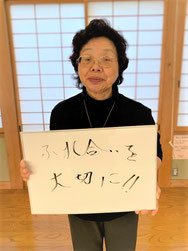 ふれ合いを
大切に!!